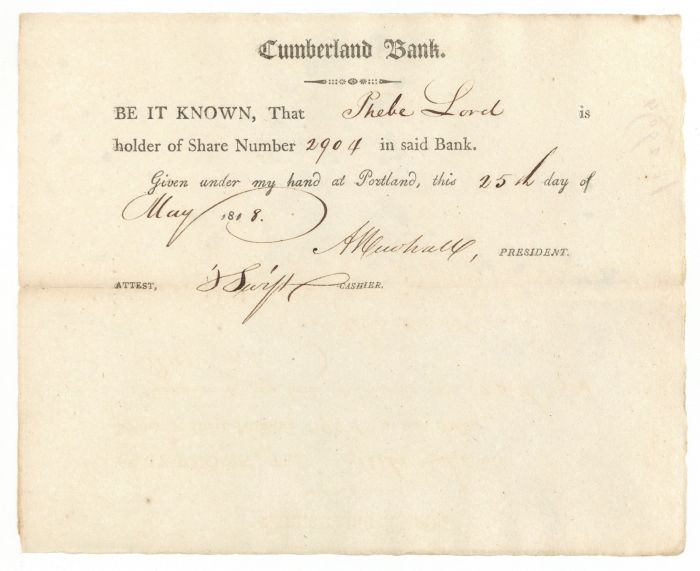 Cumberland Bank.
BE IT KNOWN, That Phebe Lord is
holder of Share Number 2904 in said Bank.
Given under my hand at Portland, this 25th day of
May 1818.
A Newhall, PRESIDENT.
ATTEST, Swift CASHIER.